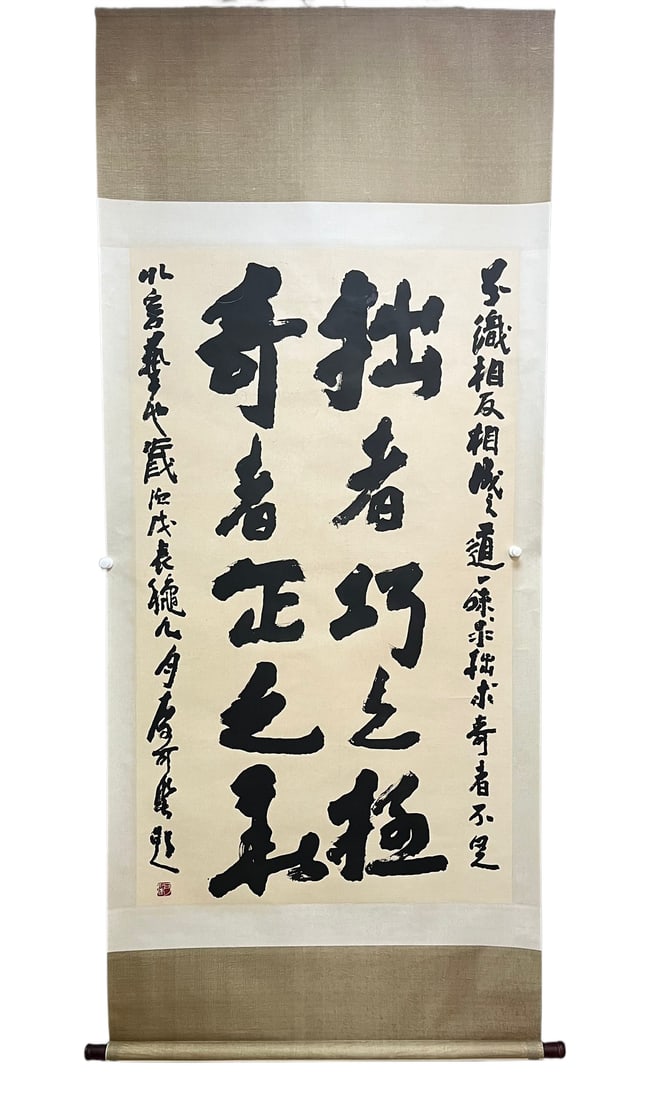 不識相反相成之道一味求拙求奇者不足
拙者巧之極
奇者正之
以言藝也歲次戊辰龝九月題